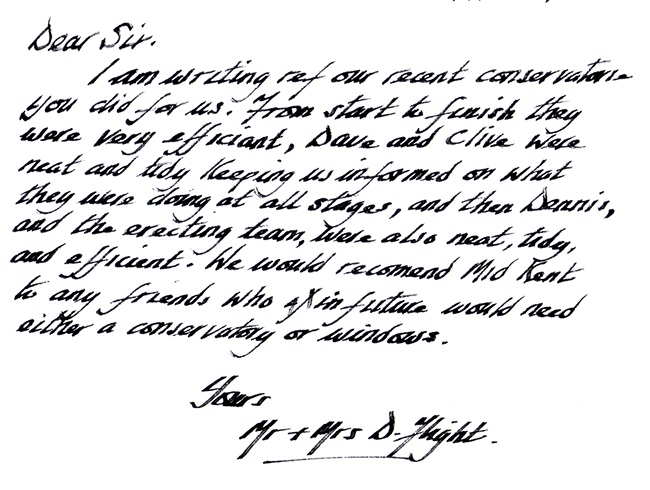 Dear Sir.
I am writing ref our recent conservatorie
you did for us. From start to finish they
were very efficiant, Dave and Clive were
neat and tidy Keeping us informed on what
they were doing at all stages, and then Dennis,
and the erecting team, were also neat, tidy,
and efficient. We would recomend Mid Kent
to any friends who in future would need
either a conservatory or windows.
Yours
Mr + Mrs D. Flight.